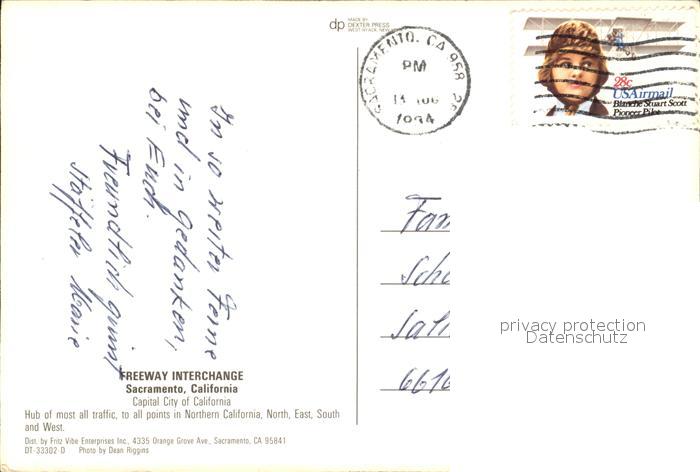 dp MADE BY
DEXTER PRESS
WEST NYACK, NEW YORK
SACRAMENTO, CA 958
PM
1984
28c
USAirmail
Blanche Stuart Scott
Pioneer Pilot
In so weiter Ferne
und in Gedanken,
bei Euch.
Freundlich grüsst
Marie
Fam
Sch
Sal
661
privacy protection
Datenschutz
FREEWAY INTERCHANGE
Sacramento, California
Capital City of California
Hub of most all traffic, to all points in Northern California, North, East, South
and West.
Dist. by Fritz Vibe Enterprises Inc., 4335 Orange Grove Ave., Sacramento, CA 95841
DT-33302-D Photo by Dean Riggins